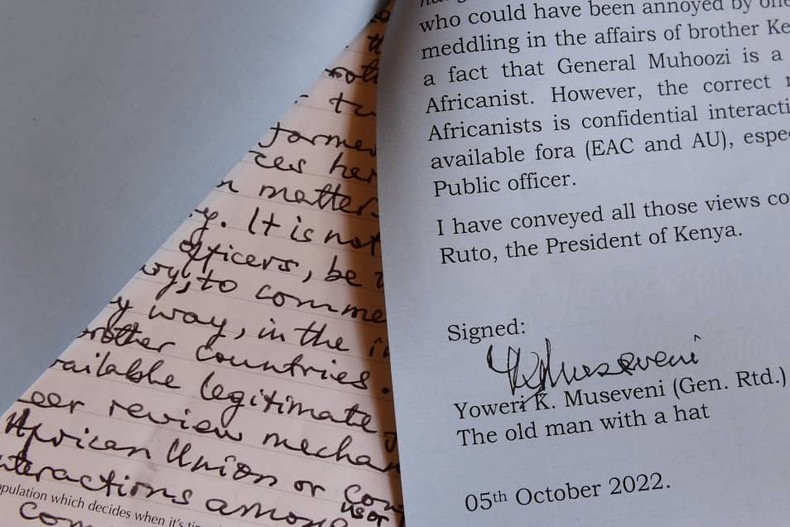 matter
y. It is not
officers, be
to comme
y way, in the
brother countries.
ailable legitimate
eer review mechan
African Union or Com
nteractions among
opulation which decides when it's ti
who could have been annoyed by one
meddling in the affairs of brother Ke
a fact that General Muhoozi is a
Africanist. However, the correct
Africanists is confidential interacti
available fora (EAC and AU), espe
Public officer.
I have conveyed all those views co
Ruto, the President of Kenya.
Signed:
YKMuseveni
Yoweri K. Museveni (Gen. Rtd.)
The old man with a hat
05th October 2022.